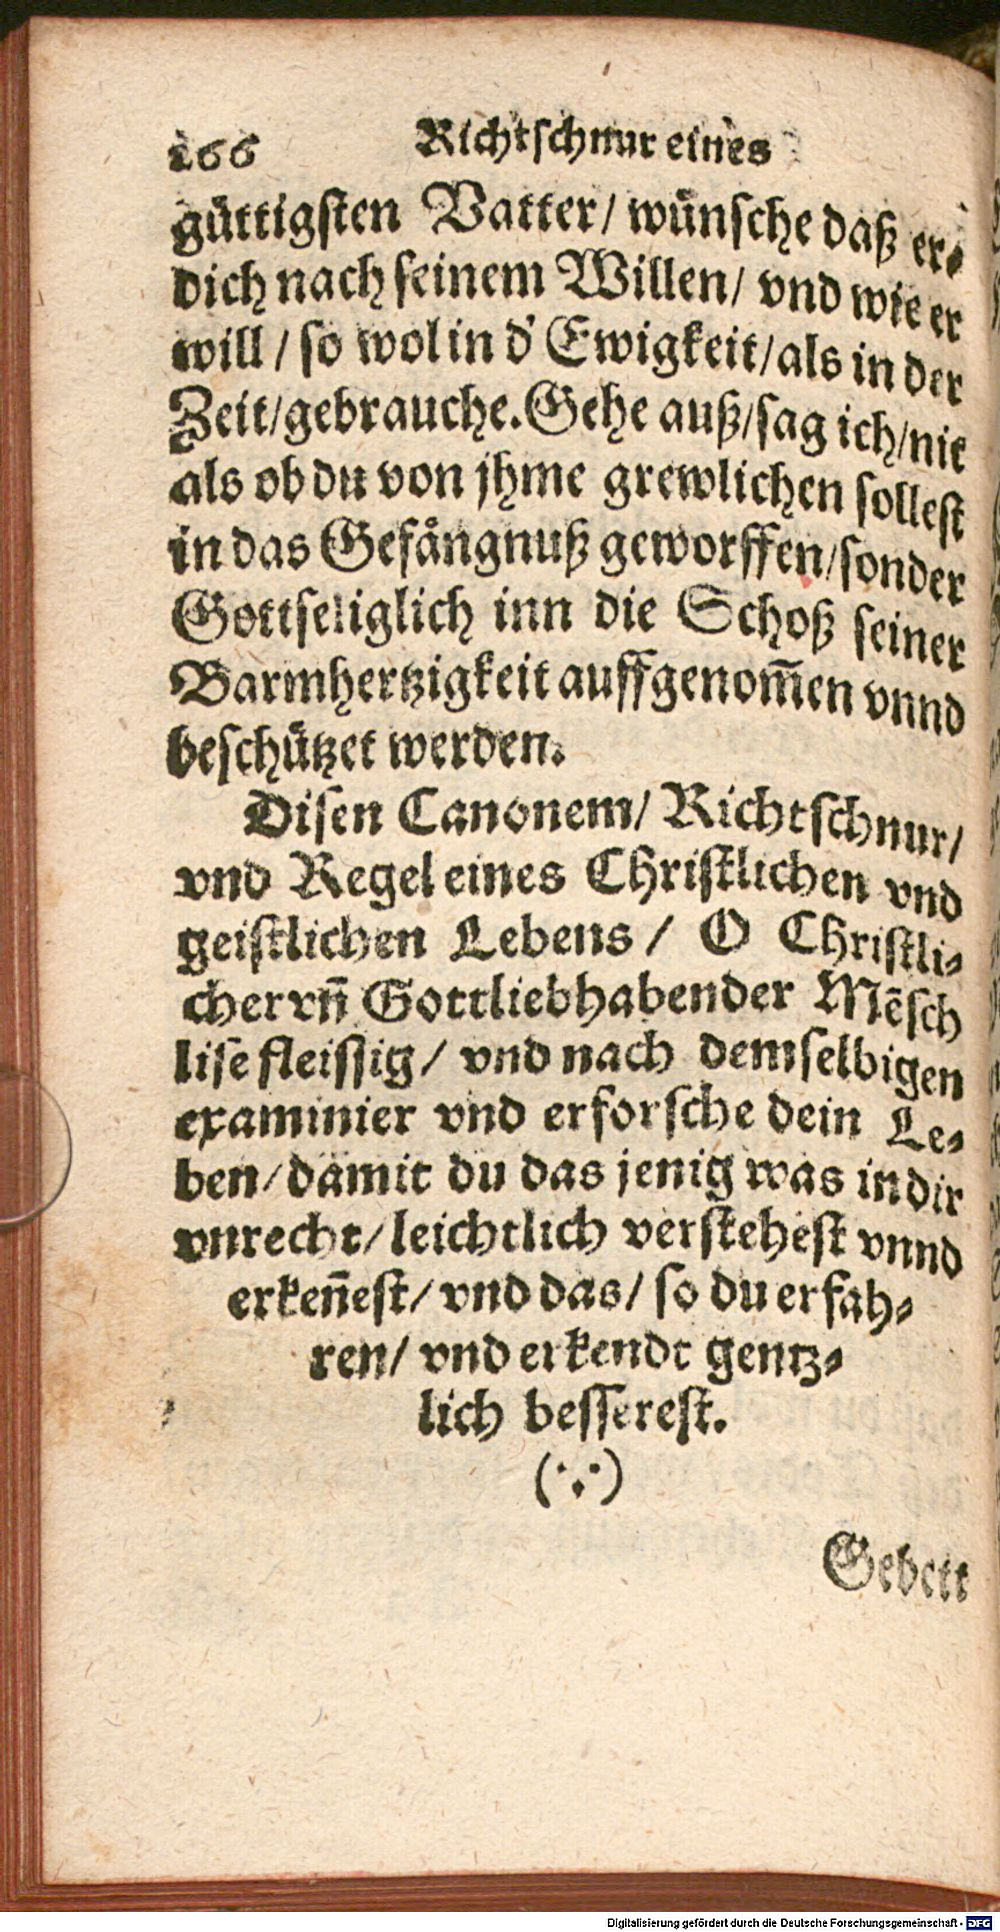 166 Richtschnur eines
güttigsten Vatter/ wünsche daß er
dich nach seinem Willen/ vnd wie er
will/ so wol in d' Ewigkeit/als in der
Zeit/gebrauche. Gehe auß/sag ich/nit
als ob du von jhme grewlichen sollest
in das Gefångnuß geworffen/sonder
Gottseliglich inn die Schoß seiner
Barmhertzigkeit auffgenom̃en vnnd
beschützet werden.
Disen Canonem/ Richtschnur/
vnd Regel eines Christlichen vnd
geistlichen Lebens/ O Christli-
cher vñ Gottliebhabender Mẽsch
lise fleissig/ vnd nach demselbigen
examinier vnd erforsche dein Le-
ben/damit du das jenig was in dir
vnrecht/leichtlich verstehest vnnd
erkeñest/ vnd das/ so du erfah-
ren/ vnd erkendt gentz-
lich besserest.
(∵)
Gebett
Digitalisierung gefördert durch die Deutsche Forschungsgemeinschaft - DFG